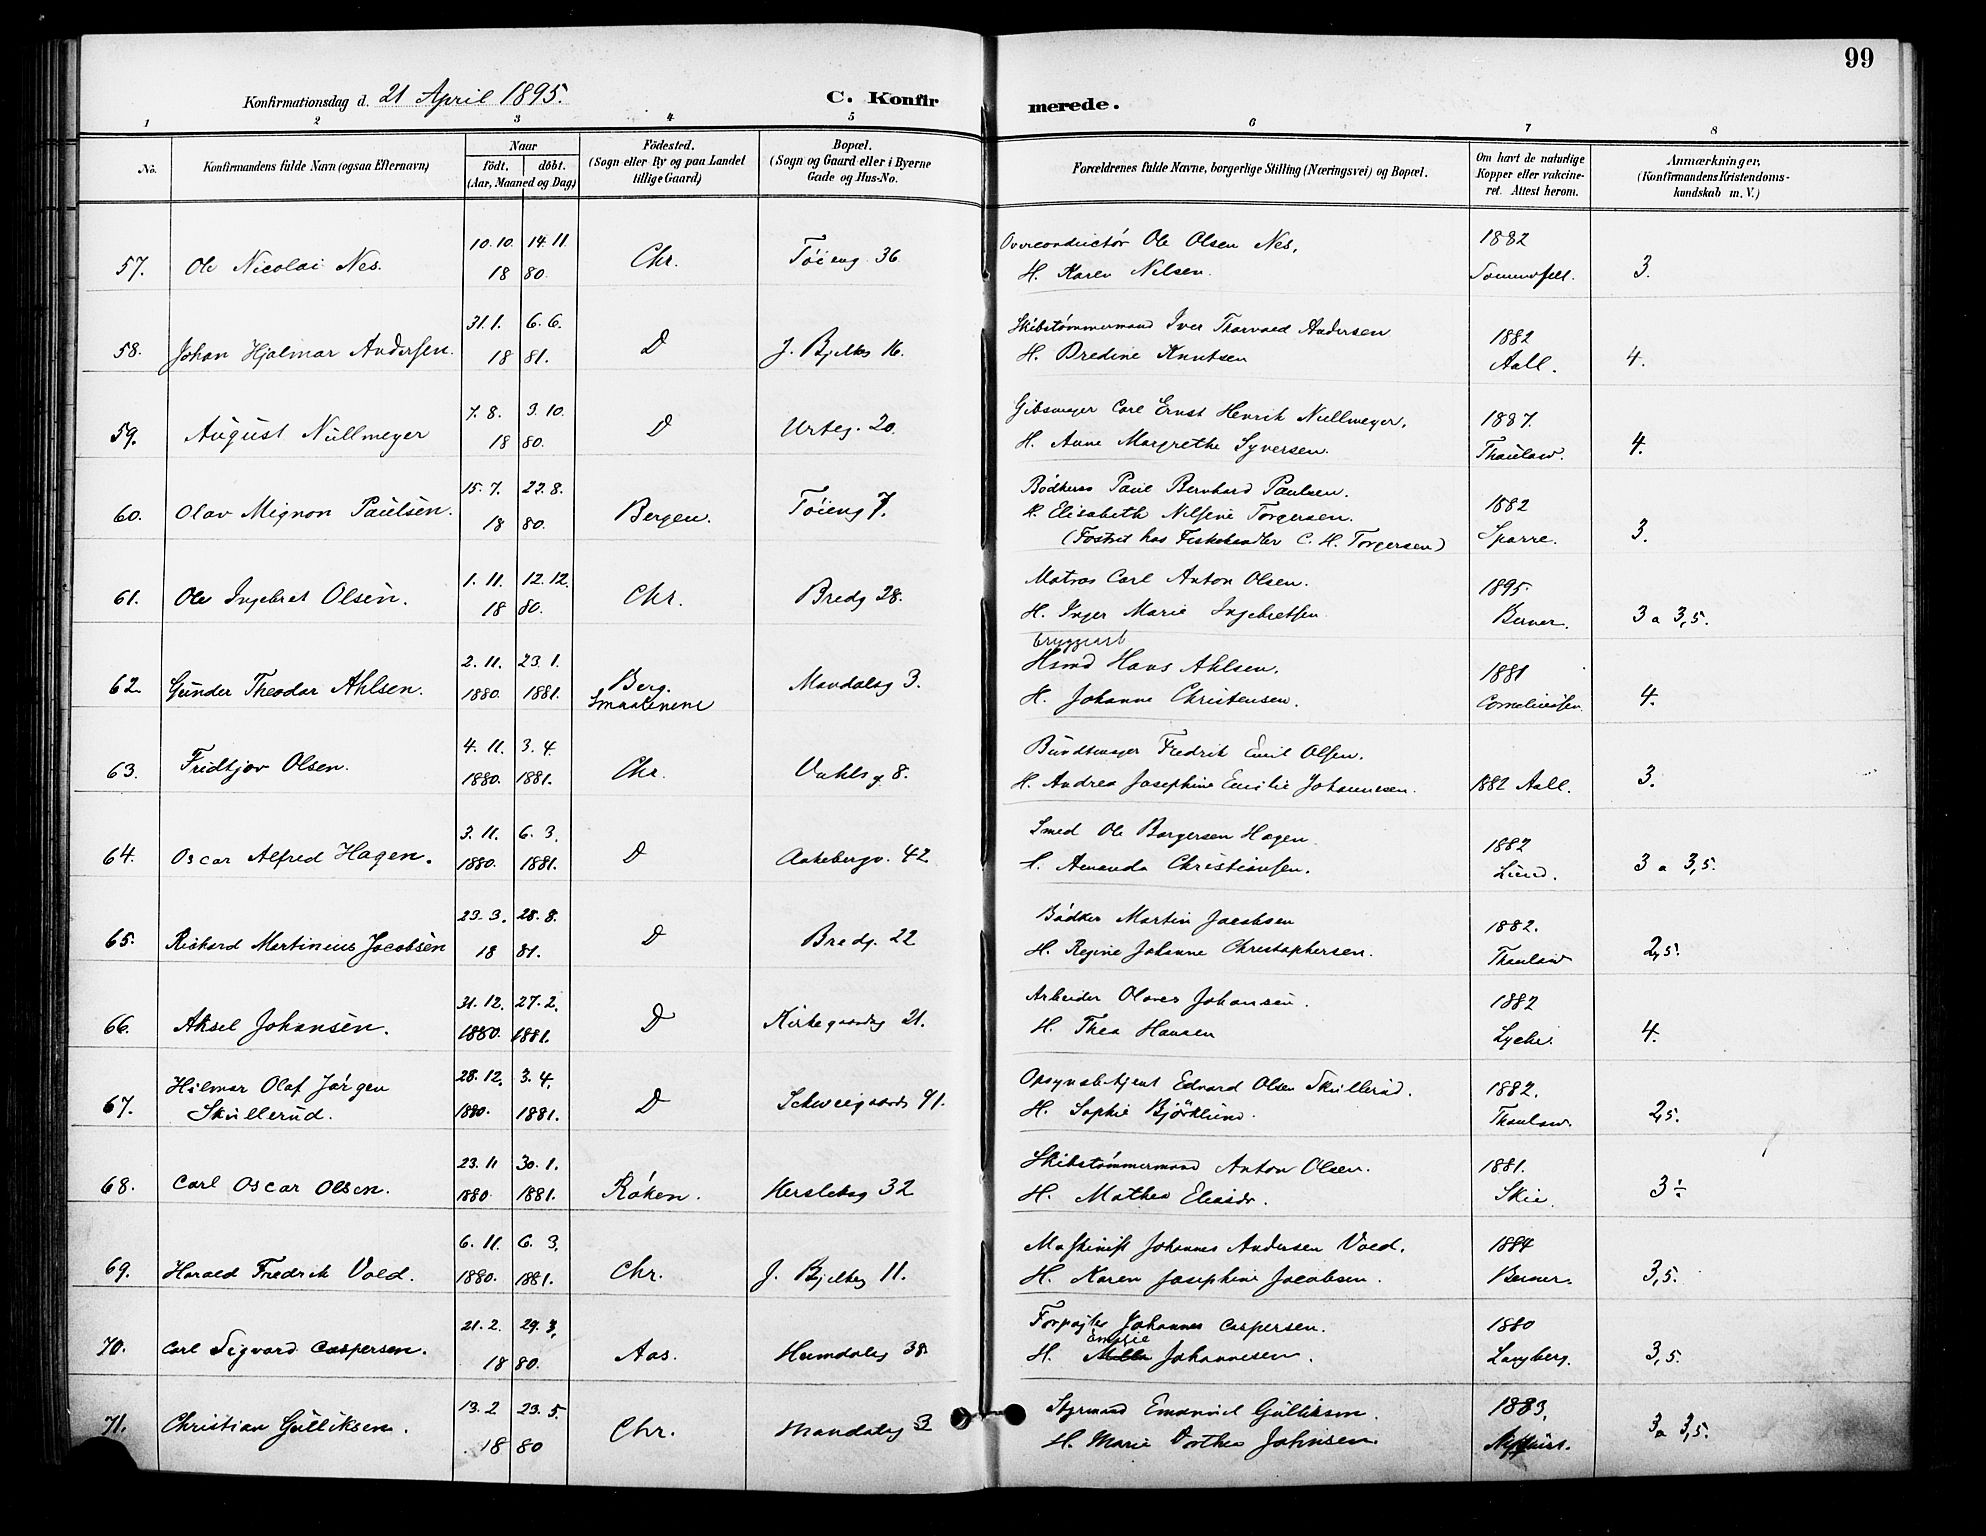 99
Konfirmationsdag d. 21 April 1895.
C. Konfirmerede.
1 2 3 4 5 6 7 8
No.
Konfirmandens fulde Navn (ogsaa Efternavn)
Naar
født, døbt.
(Aar, Maaned og Dag)
Fødested.
(Sogn eller By og paa Landet
tillige Gaard)
Bopæl.
(Sogn og Gaard eller i Byerne
Gade og Hus-No.
Forældrenes fulde Navne, borgerlige Stilling (Næringsvei) og Bopæl.
Om havt de naturlige
Kopper eller vakcine-
ret. Attest herom.
Anmærkninger,
(Konfirmandens Kristendoms-
kundskab m. V.)
10.10. 14.11. Overconductør Ole Olsen Nes, 1882
57. Ole Nicolai Nes. 18 80. Chr. Tøieng. 36 H. Karen Nilsen. Sommerfelt. 3.
31.1. 6.6. Skibstømmermand Iver Thorvald Andersen 1882
58. Johan Hjalmar Andersen. 18 81. D J. Bjelkes 16. H. Bredine Knutsen Aall. 4.
7.8. 3.10. Gibsmager Carl Ernst Henrik Nullmeyer, 1887.
59. August Nullmeyer 18 80. D Urteg. 20. H. Anne Margrethe Syversen. Thaulow. 4.
15.7. 22.8. Bødkersv Paul Bernhard Paulsen. 1882
60. Olav Mignon Paulsen. 18 80. Bergen. Tøieng 7. H. Elisabeth Nilsine Torgersen. Sparre. 3.
(Fostret hos Fiskehandler C. H. Torgersen)
1.11. 12.12. Matros Carl Anton Olsen. 1895.
61. Ole Ingebret Olsen. 18 80. Chr. Bredg 28. H. Inger Marie Ingebretsen Berner. 3 a 3,5.
bryggearb
2.11. 23.1. Hsmd Hans Ahlsen. 1881
62. Gunder Theodor Ahlsen. 1880. 1881. Berg. Smaalenene Mandalsg 3. H. Johanne Christensen. Corneliussen 4.
4.11. 3.4. Bundtmager Fredrik Emil Olsen.
63. Fridtjov Olsen. 1880. 1881. Chr. Vahlsg 8. H. Andrea Josephine Emilie Johannesen. 1882 Aall. 3.
3.11. 6.3. Smed Ole Borgersen Hagen 1882
64. Oscar Alfred Hagen. 1880. 1881. D Aakebergv. 42 H. Amanda Christiansen. Lund. 3 a 3,5.
23.3. 28.8. Bødker Martin Jacobsen 1882.
65. Rickard Martinius Jacobsen 18 81. D Bredg. 22 H. Regine Johanne Christophersen. Thaulow 2,5.
31.12. 27.2. Arbeider Olaves Johansen. 1882
66. Aksel Johansen. 1880. 1881. D Kirkegaardsg 21. H. Thea Hansen Lyche. 4.
Hilmar Olaf Jørgen 28.12. 3.4. Opsynsbetjent Edvard Olsen Skullerud. 1882.
67. Skullerud. 1880. 1881. D Schweigaards 91. H. Sophie Bjørklund. Thaulow. 2,5.
23.11 30.1. Skibstømmermand Anton Olsen. 1881.
68. Carl Oscar Olsen. 1880 1881. Røken. Herslebsg 32 H. Mathea Eliasdr. Skie. 3÷
6.11. 6.3. Maskinist Johannes Andersen Vold. 1884
69. Harald Fredrik Vold. 1880. 1881. Chr. J. Bjelkes 11. H. Karen Josephine Jacobsen. Berner. 3,5.
21.2. 29.3. Forpagter Johannes Caspersen. 1880
70. Carl Sigvard Caspersen. 18 80. Aas. Heimdalsg 38. H. Emilie Johannesen. Langberg. 3,5.
13.2 23.5. Styrmand Emanuel Gulliksen. 1883,
71. Christian Gulliksen. 18 80 Chr. Mandalsg 3 H. Marie Dorthea Johnsen. 3 a 3,5.